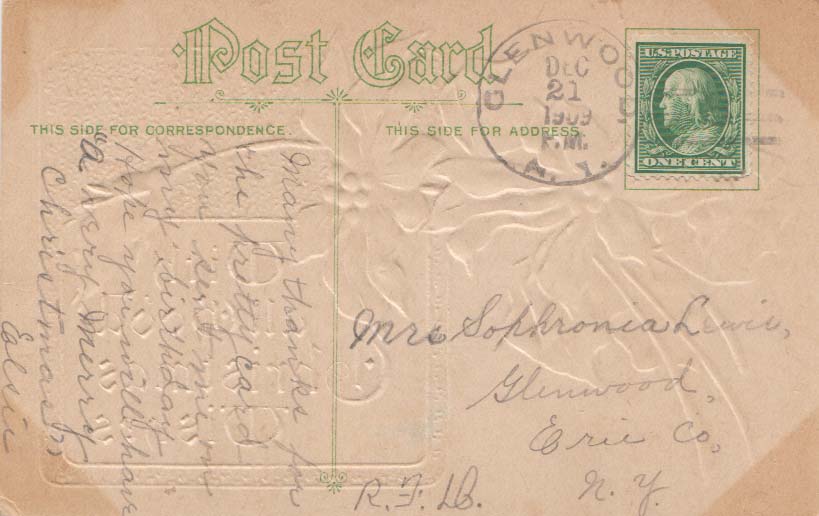 Post Card
THIS SIDE FOR CORRESPONDENCE.
THIS SIDE FOR ADDRESS.
GLENWOOD
DEC
21
1909
P.M.
N. Y.
U.S. POSTAGE
ONE CENT
Many thanks for
the pretty card
you sent me on
my birthday
Hope you will have
"a very merry
Christmas"
Elsie
Mrs Sophronia Lewis,
Glenwood,
Erie Co,
N. Y.
R. F. D.